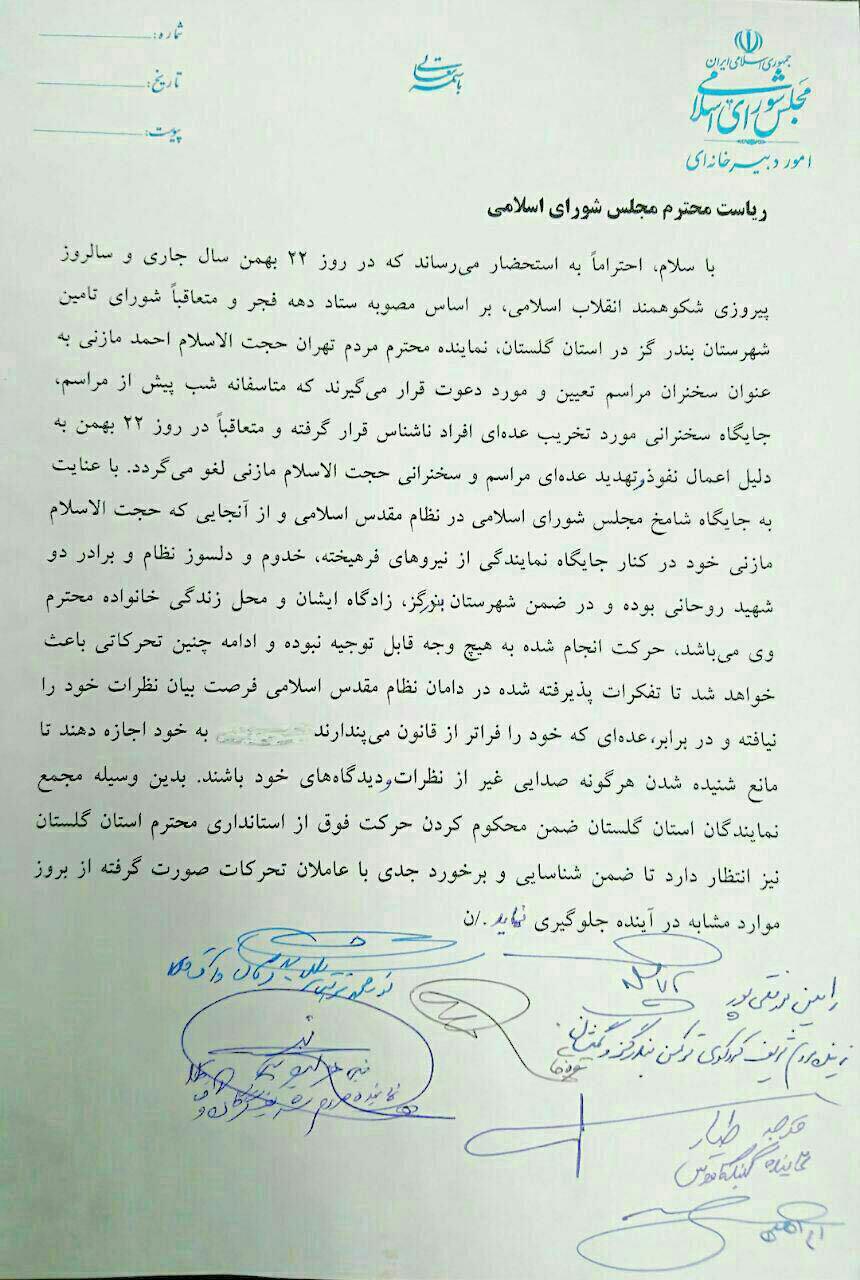 جمهوری اسلامی ایران
مجلس شورای اسلامی
امور دبیرخانه‌ای
باسمه تعالی
شماره:
تاریخ:
پیوست:
ریاست محترم مجلس شورای اسلامی
با سلام، احتراماً به استحضار می‌رساند که در روز ۲۲ بهمن سال جاری و سالروز
پیروزی شکوهمند انقلاب اسلامی، بر اساس مصوبه ستاد دهه فجر و متعاقباً شورای تامین
شهرستان بندر گز در استان گلستان، نماینده محترم مردم تهران حجت الاسلام احمد مازنی به
عنوان سخنران مراسم تعیین و مورد دعوت قرار می‌گیرند که متاسفانه شب پیش از مراسم،
جایگاه سخنرانی مورد تخریب عده‌ای افراد ناشناس قرار گرفته و متعاقباً در روز ۲۲ بهمن به
دلیل اعمال نفوذ و تهدید عده‌ای مراسم و سخنرانی حجت الاسلام مازنی لغو می‌گردد. با عنایت
به جایگاه شامخ مجلس شورای اسلامی در نظام مقدس اسلامی و از آنجایی که حجت الاسلام
مازنی خود در کنار جایگاه نمایندگی از نیروهای فرهیخته، خدوم و دلسوز نظام و برادر دو
شهید روحانی بوده و در ضمن شهرستان بندرگز، زادگاه ایشان و محل زندگی خانواده محترم
وی می‌باشد، حرکت انجام شده به هیچ وجه قابل توجیه نبوده و ادامه چنین تحرکاتی باعث
خواهد شد تا تفکرات پذیرفته شده در دامان نظام مقدس اسلامی فرصت بیان نظرات خود را
نیافته و در برابر، عده‌ای که خود را فراتر از قانون می‌پندارند به خود اجازه دهند تا
مانع شنیده شدن هرگونه صدایی غیر از نظرات و دیدگاه‌های خود باشند. بدین وسیله مجمع
نمایندگان استان گلستان ضمن محکوم کردن حرکت فوق از استانداری محترم استان گلستان
نیز انتظار دارد تا ضمن شناسایی و برخورد جدی با عاملان تحرکات صورت گرفته از بروز
موارد مشابه در آینده جلوگیری نماید ./ن
رامین نورقلی پور
نماینده مردم شریف کردکوی ترکمن بندرگز و گمیشان
نماینده مردم
نماینده گنبدکاووس